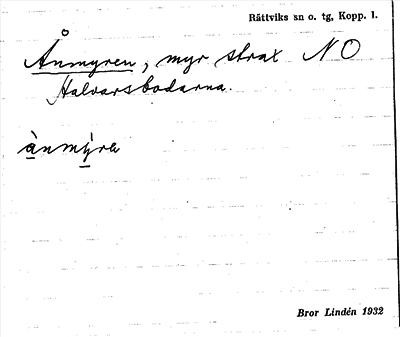 Rättviks sn o. tg, Kopp. l.
Ånmyren, myr strax NO
Halvarsbodarna.
ànmýra
Bror Lindén 1932